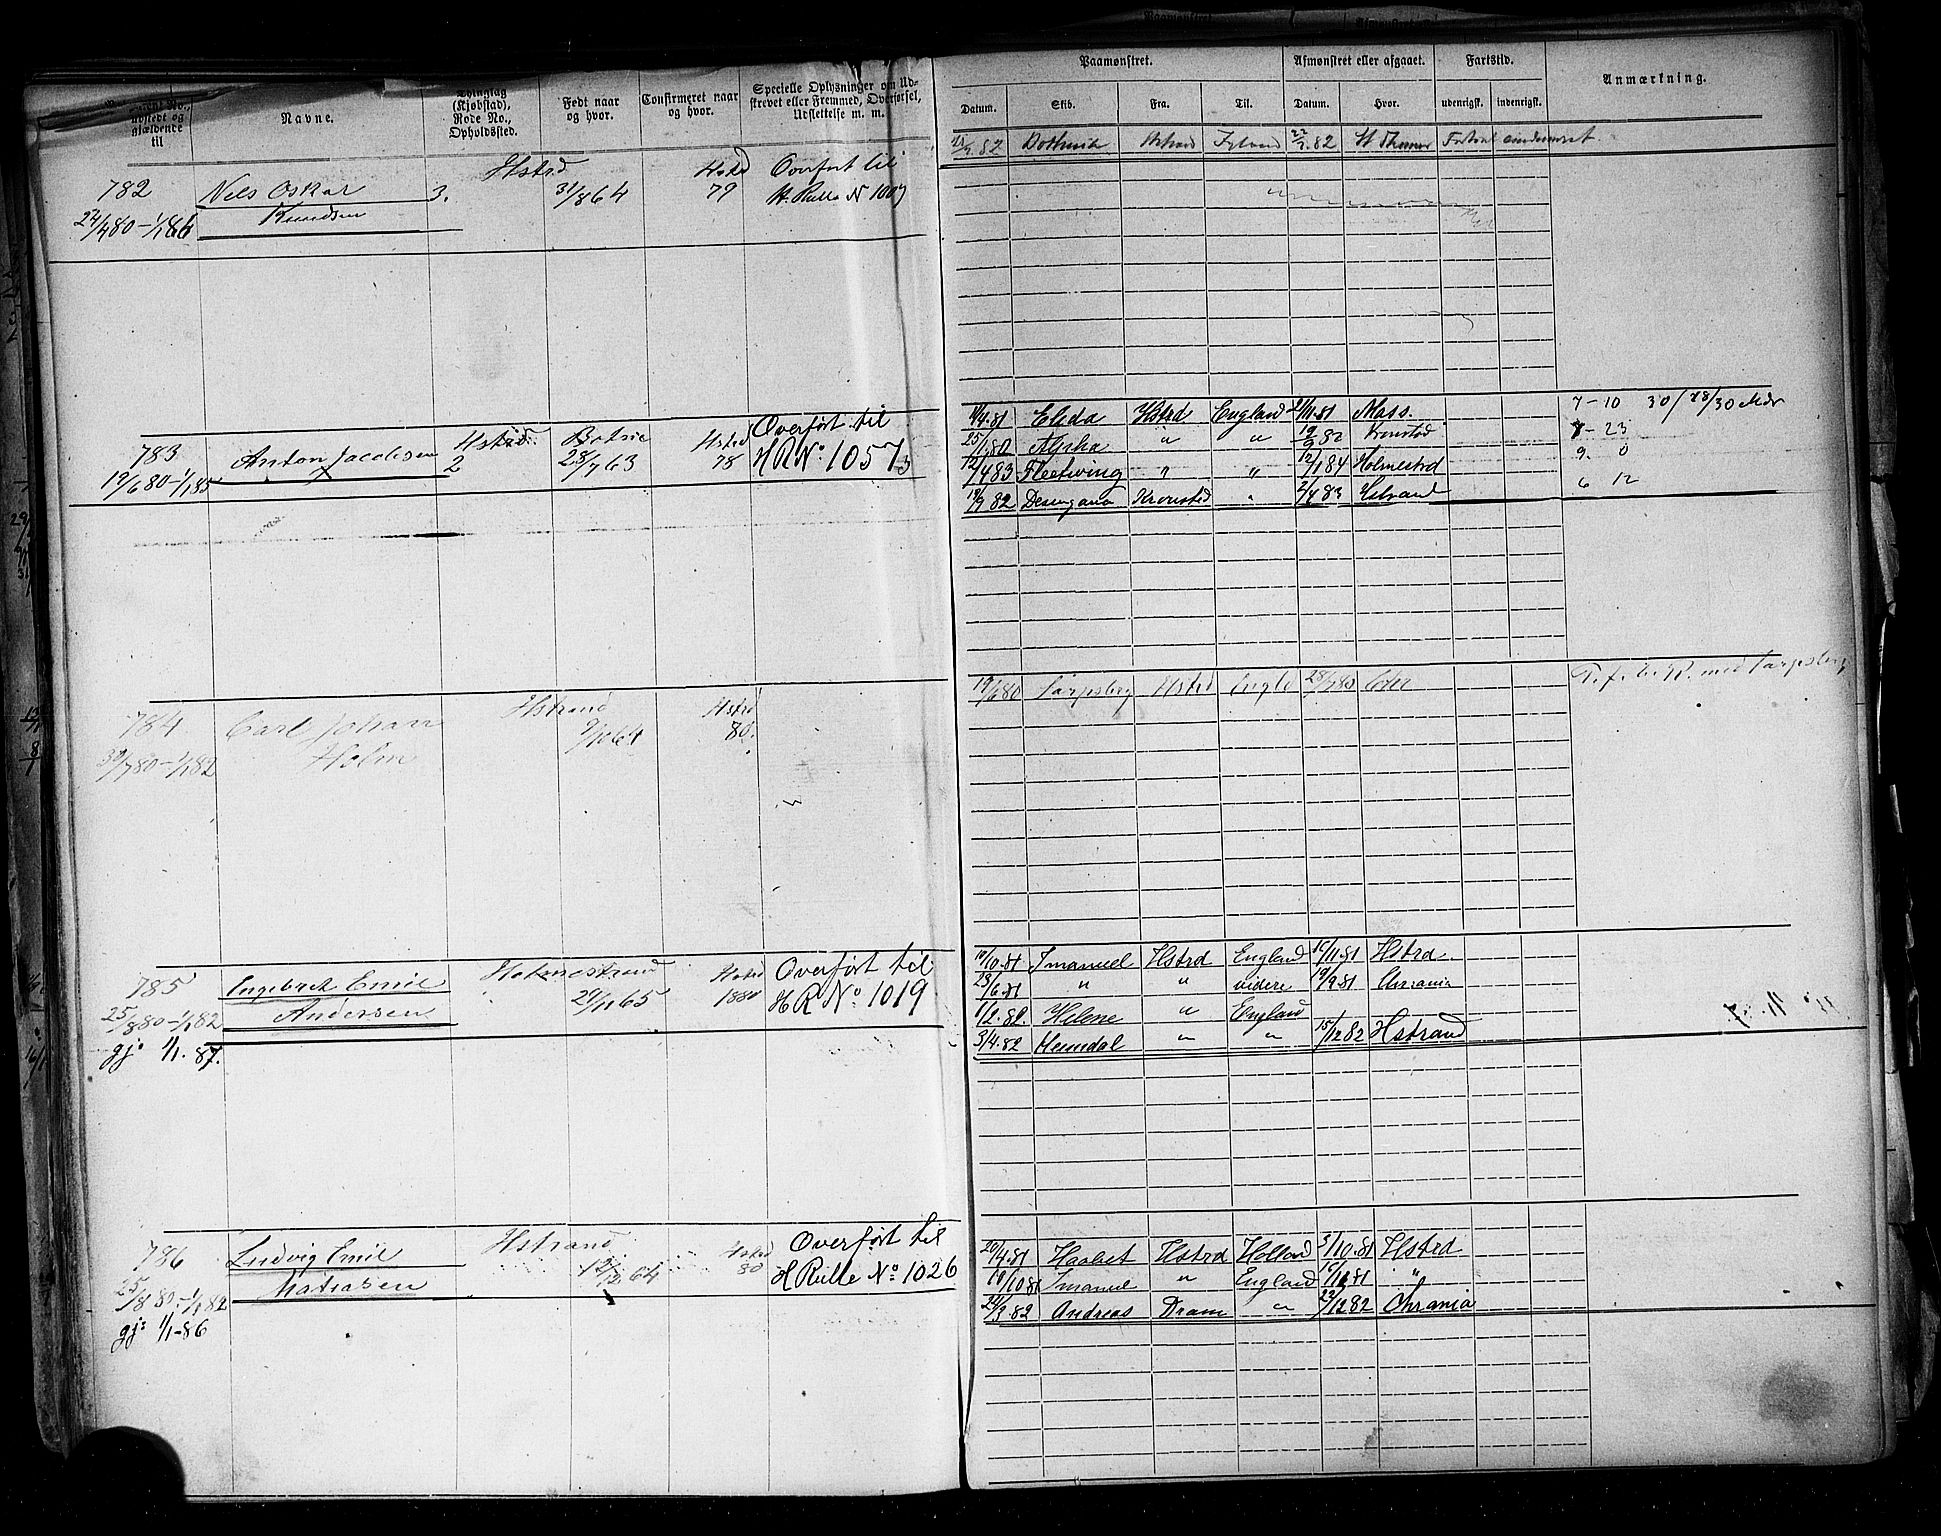 Navne.
Thinglag
(Kjøbstad),
Rode No.,
Opholdssted.
Født naar
og hvor.
Confirmeret naar
og hvor.
Specielle Oplysninger om Ud-
skrevet eller Fremmed, Overførsel,
Udslettelse m. m.
udstedt og
gjældende
til
Paamønstret.
Afmønstret eller afgaaet.
Fartstid.
Anmærkning.
Datum. Skib. Fra. Til. Datum. Hvor. udenrigsk. indenrigsk.
782
24/4 80 – 1/1 86
Nils Oskar
Knudsen
Hstrd
3.
31/8 64
Hstrd
79
Overført til
H. Rulle N 1009
82 22/7 82 St Thomas
783
19/6 80 – 1/1 85
Anton Jacobsen
Hstrd
2
Botne
28/7 63
Hstrd
78
Overført til
H R No 1057
4.81 Eleda Hstrd England 11.81 Mass. 7 – 10 30/ 28/30 Mdr
25/1 80 Alpha " " 19/9 82 Kronstad 23
12/4 83 Fleetwing " " 12/1 84 Holmestrd 9. 0
19/9 82 Kronstad 2/4 83 Hstrand 6 12
784
30/7 80 – 1/1 82
Carl Johan
Holm
Hstrand
9/10 64
Hstrd
80.
19/6 80 Sarpsborg Hstrd Engld 28/7 80 med Sarpsborg
785
25/8 80 – 1/1 82
gj: 1/1. 87.
Engebret Emil
Andersen
Holmestrand
29/11 65
Hstrd
1880
Overført til
H R No 1019
10/10.81 Imanuel Hstrd England 16/11.81 Hstrd
23/6.81 " " videre 19/9.81 Chrania
1/2.82. Helene " England
3/4.82 Heimdal " " 15/12 82 Hstrand
786
25/8 80 – 1/1 82
gj: 1/1-86
Ludvig Emil
Matiasen
Hstrand
12/12 64
Hstrd
80
Overført til
H Rulle No 1026
20/4.81 Haabet Hstrd Holland 3/10.81 Hstrd
10/10.81 Imanuel " England 16/11 81 "
24/3 82 Andreas Dram " 22/12 82 Chrania